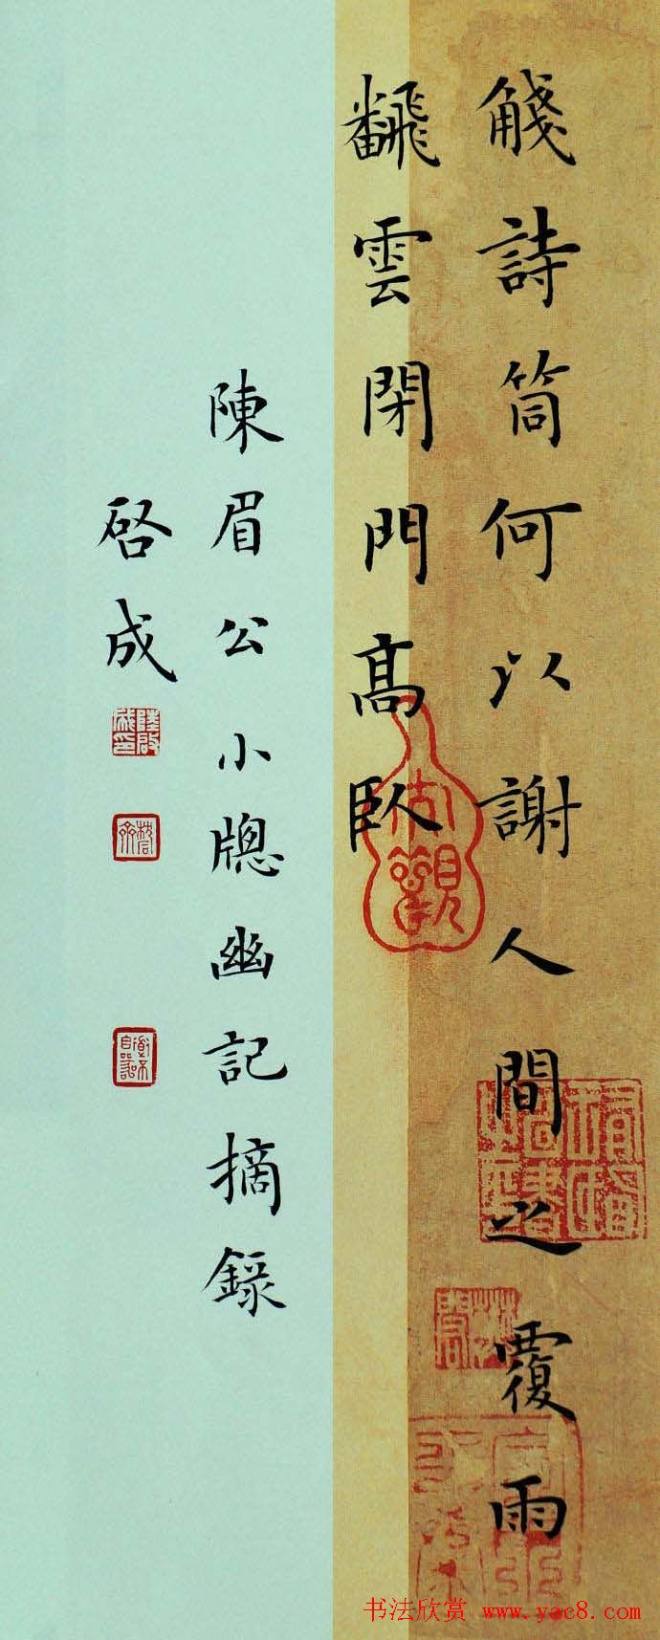 詩筒何以謝人間之覆雨
飜雲閉門髙臥
陳眉公小牕幽記摘錄
啓成
陸啟成印
书法欣赏 www.yac8.com